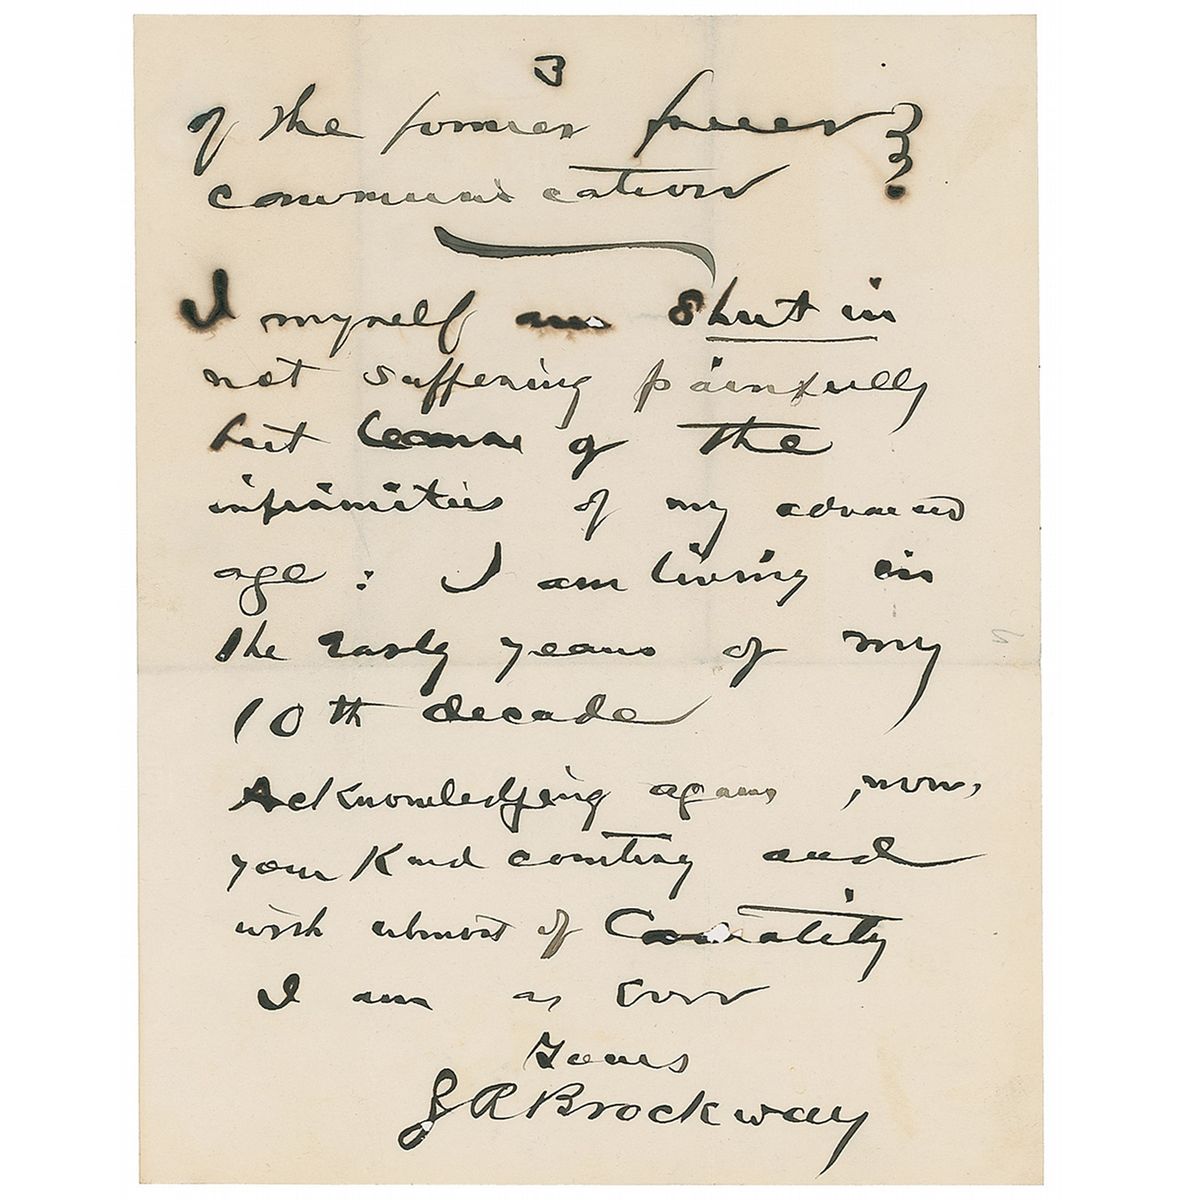 3
of the former freer
communication
I myself am Shut in
not suffering painfully
but because of the
infirmities of my advanced
age : I am living in
the early years of my
10th decade
Acknowledging again, now,
your Kind courtesy and
with utmost of Cordiality
I am as Ever
Yours
Z R Brockway